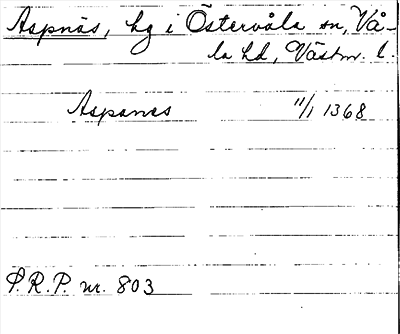 Aspnäs, hg i Östervåla sn, Vå-
la hd, Västm. l.
Aspanæs 11/1 1368
S.R.P. nr. 803